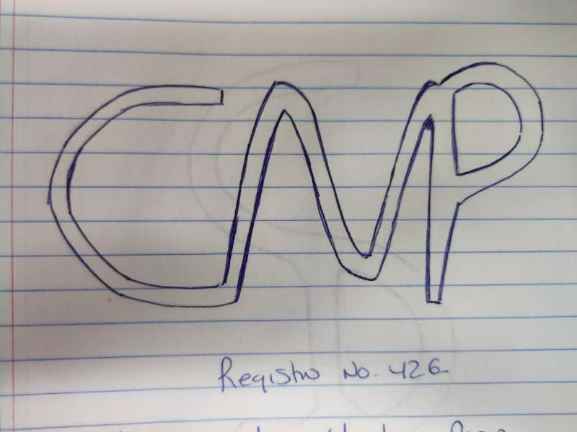 CMP
Registro No. 426